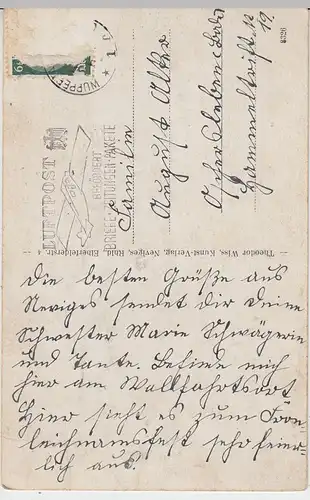 WUPPER
LUFTPOST
BEFÖRDERT
BRIEFE-ZEITUNGEN-PAKETE
Familie
August Alter
Aschersleben (Bdo
Hammeltrift
19.
8326
Theodor Wiss, Kunst-Verlag, Neviges, Rhld. Elberfelderstr. 4
Die besten Grüße aus
Neviges sendet dir Deine
Schwester Marie Schwägerin
und Tante. Befinde mich
hier am Wallfahrtsort
Hier sieht es zum Fron-
leichnamsfest sehr feier-
lich aus.